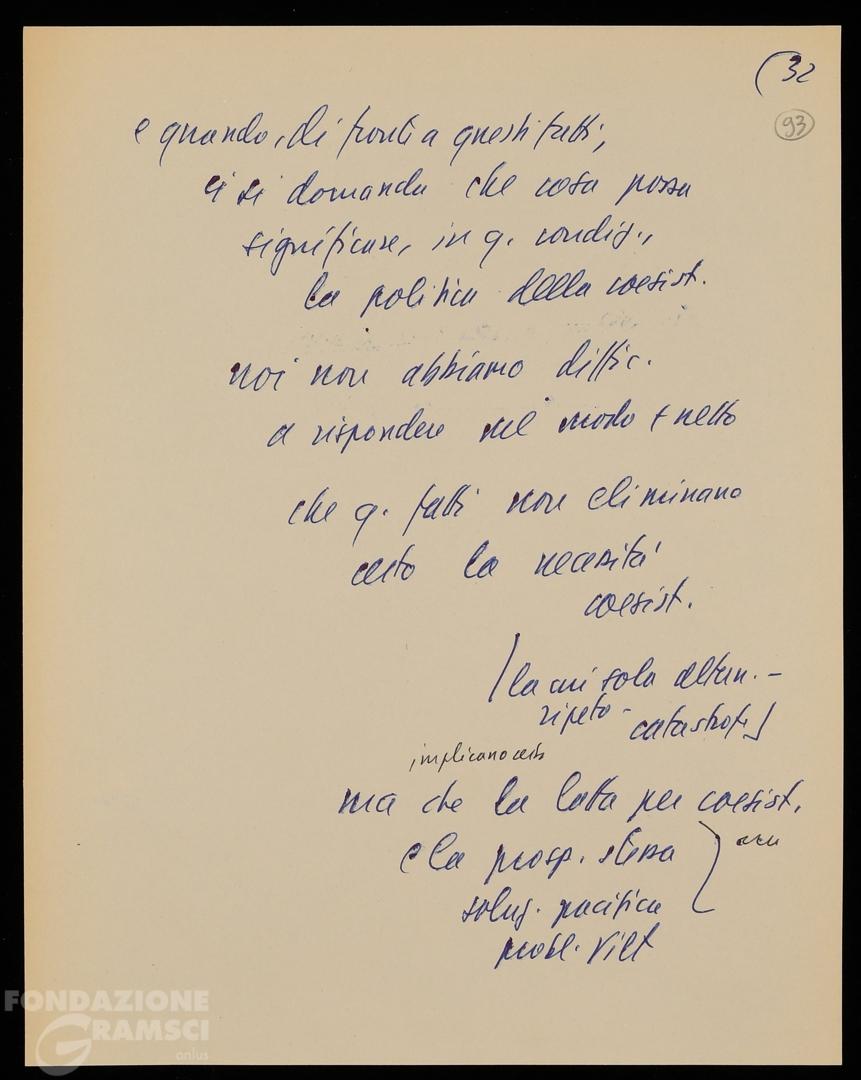 (32
93
e quando, di fronte a questi fatti,
ci si domanda che cosa possa
significare, in q. condiz.,
la politica della coesist.
noi non abbiamo diffic.
a rispondere nel modo + netto
che q. fatti non eliminano
certo la necessità
coesist.
(la cui sola altern. -
ripeto -
catastrofe)
implicano
ma che la lotta per coesist.
e la prosp. stessa
soluz. pacifica
probl. Viet
FONDAZIONE
GRAMSCI
onlus